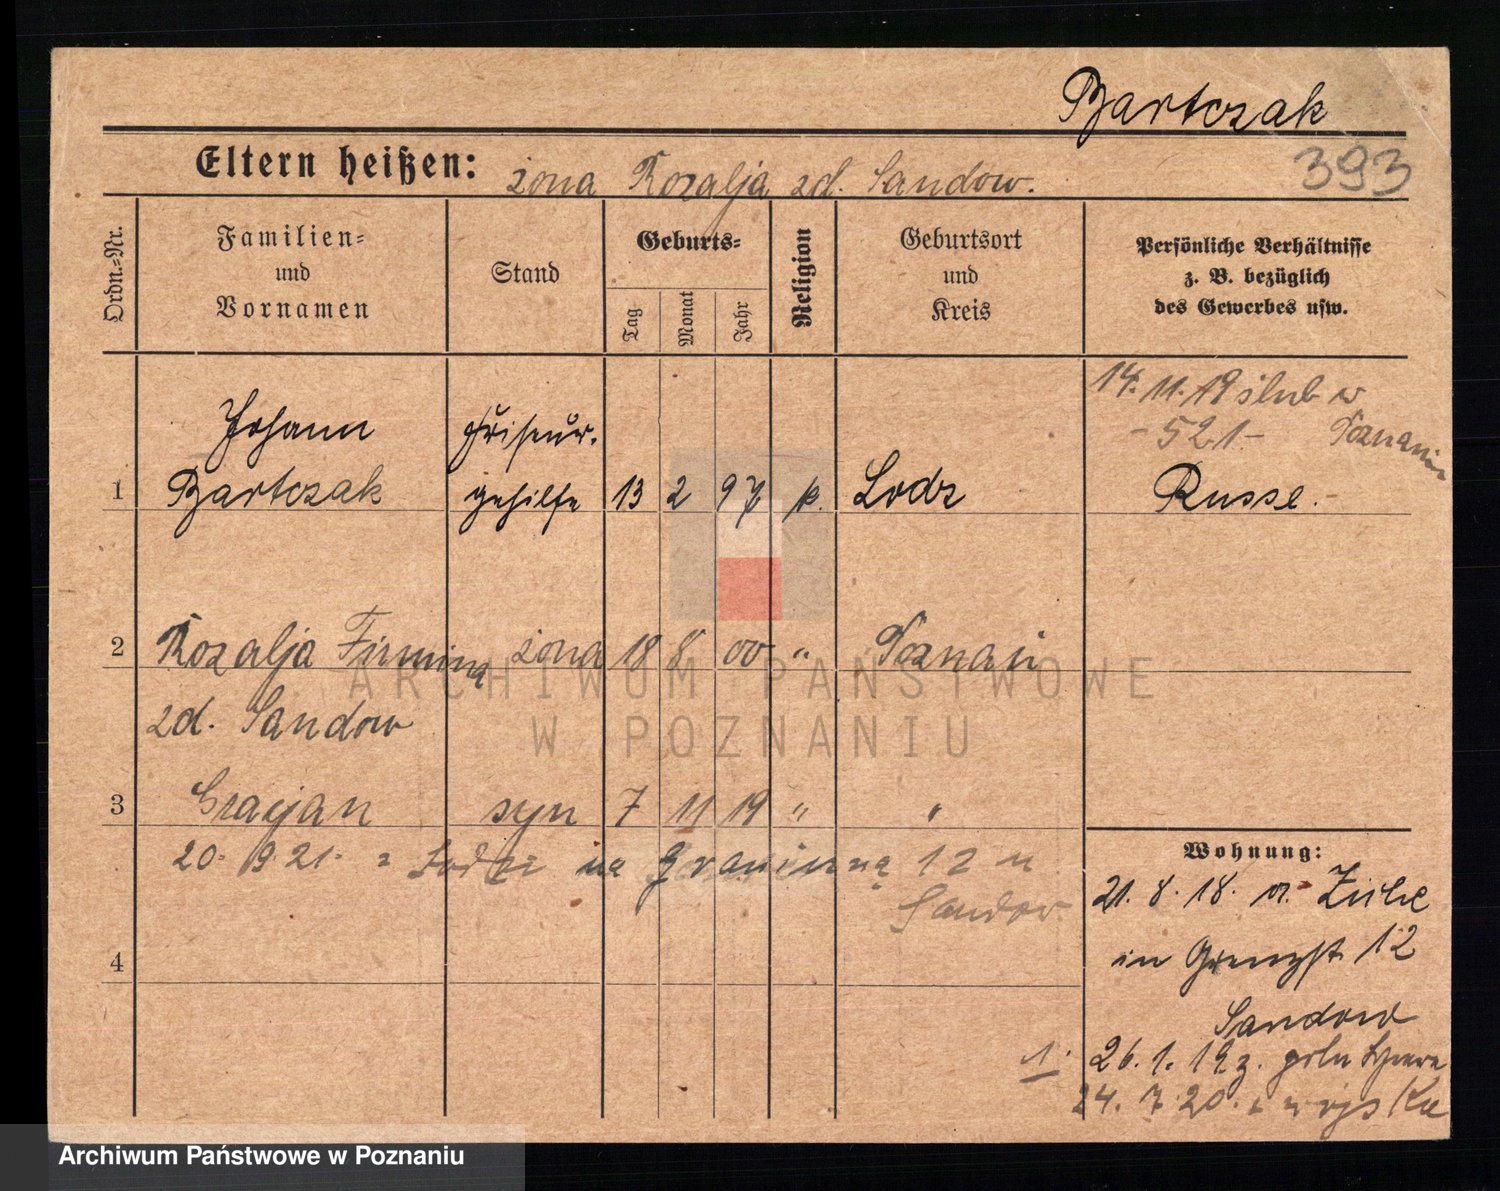 Bartczak
Eltern heißen: żona Rozalja zd. Sandow.
393
Ordn.=Nr.
Familien=
und
Vornamen
Stand
Geburts=
Tag
Monat
Jahr
Religion
Geburtsort
und
Kreis
Persönliche Verhältnisse
z. B. bezüglich
des Gewerbes usw.
14. 11. 19 ślub w
- 521 - Poznaniu
Johann Friseur.
1 Bartczak gehilfe 13 2 97 k. Lodz Russe.
2 Rozalja Firmina żona 18 8 00 " Poznań
zd. Sandow
3 Gracjan syn 7 11 19 " "
20. 9. 21. z Łodzi na Graniczną 12 u
Sandow
4
Wohnung:
21. 8. 18. a.
in Grenzstr. 12
Sandow
1. 26. 1. 19 z.
24. 7. 20. z
ARCHIWUM PAŃSTWOWE
W POZNANIU
Archiwum Państwowe w Poznaniu